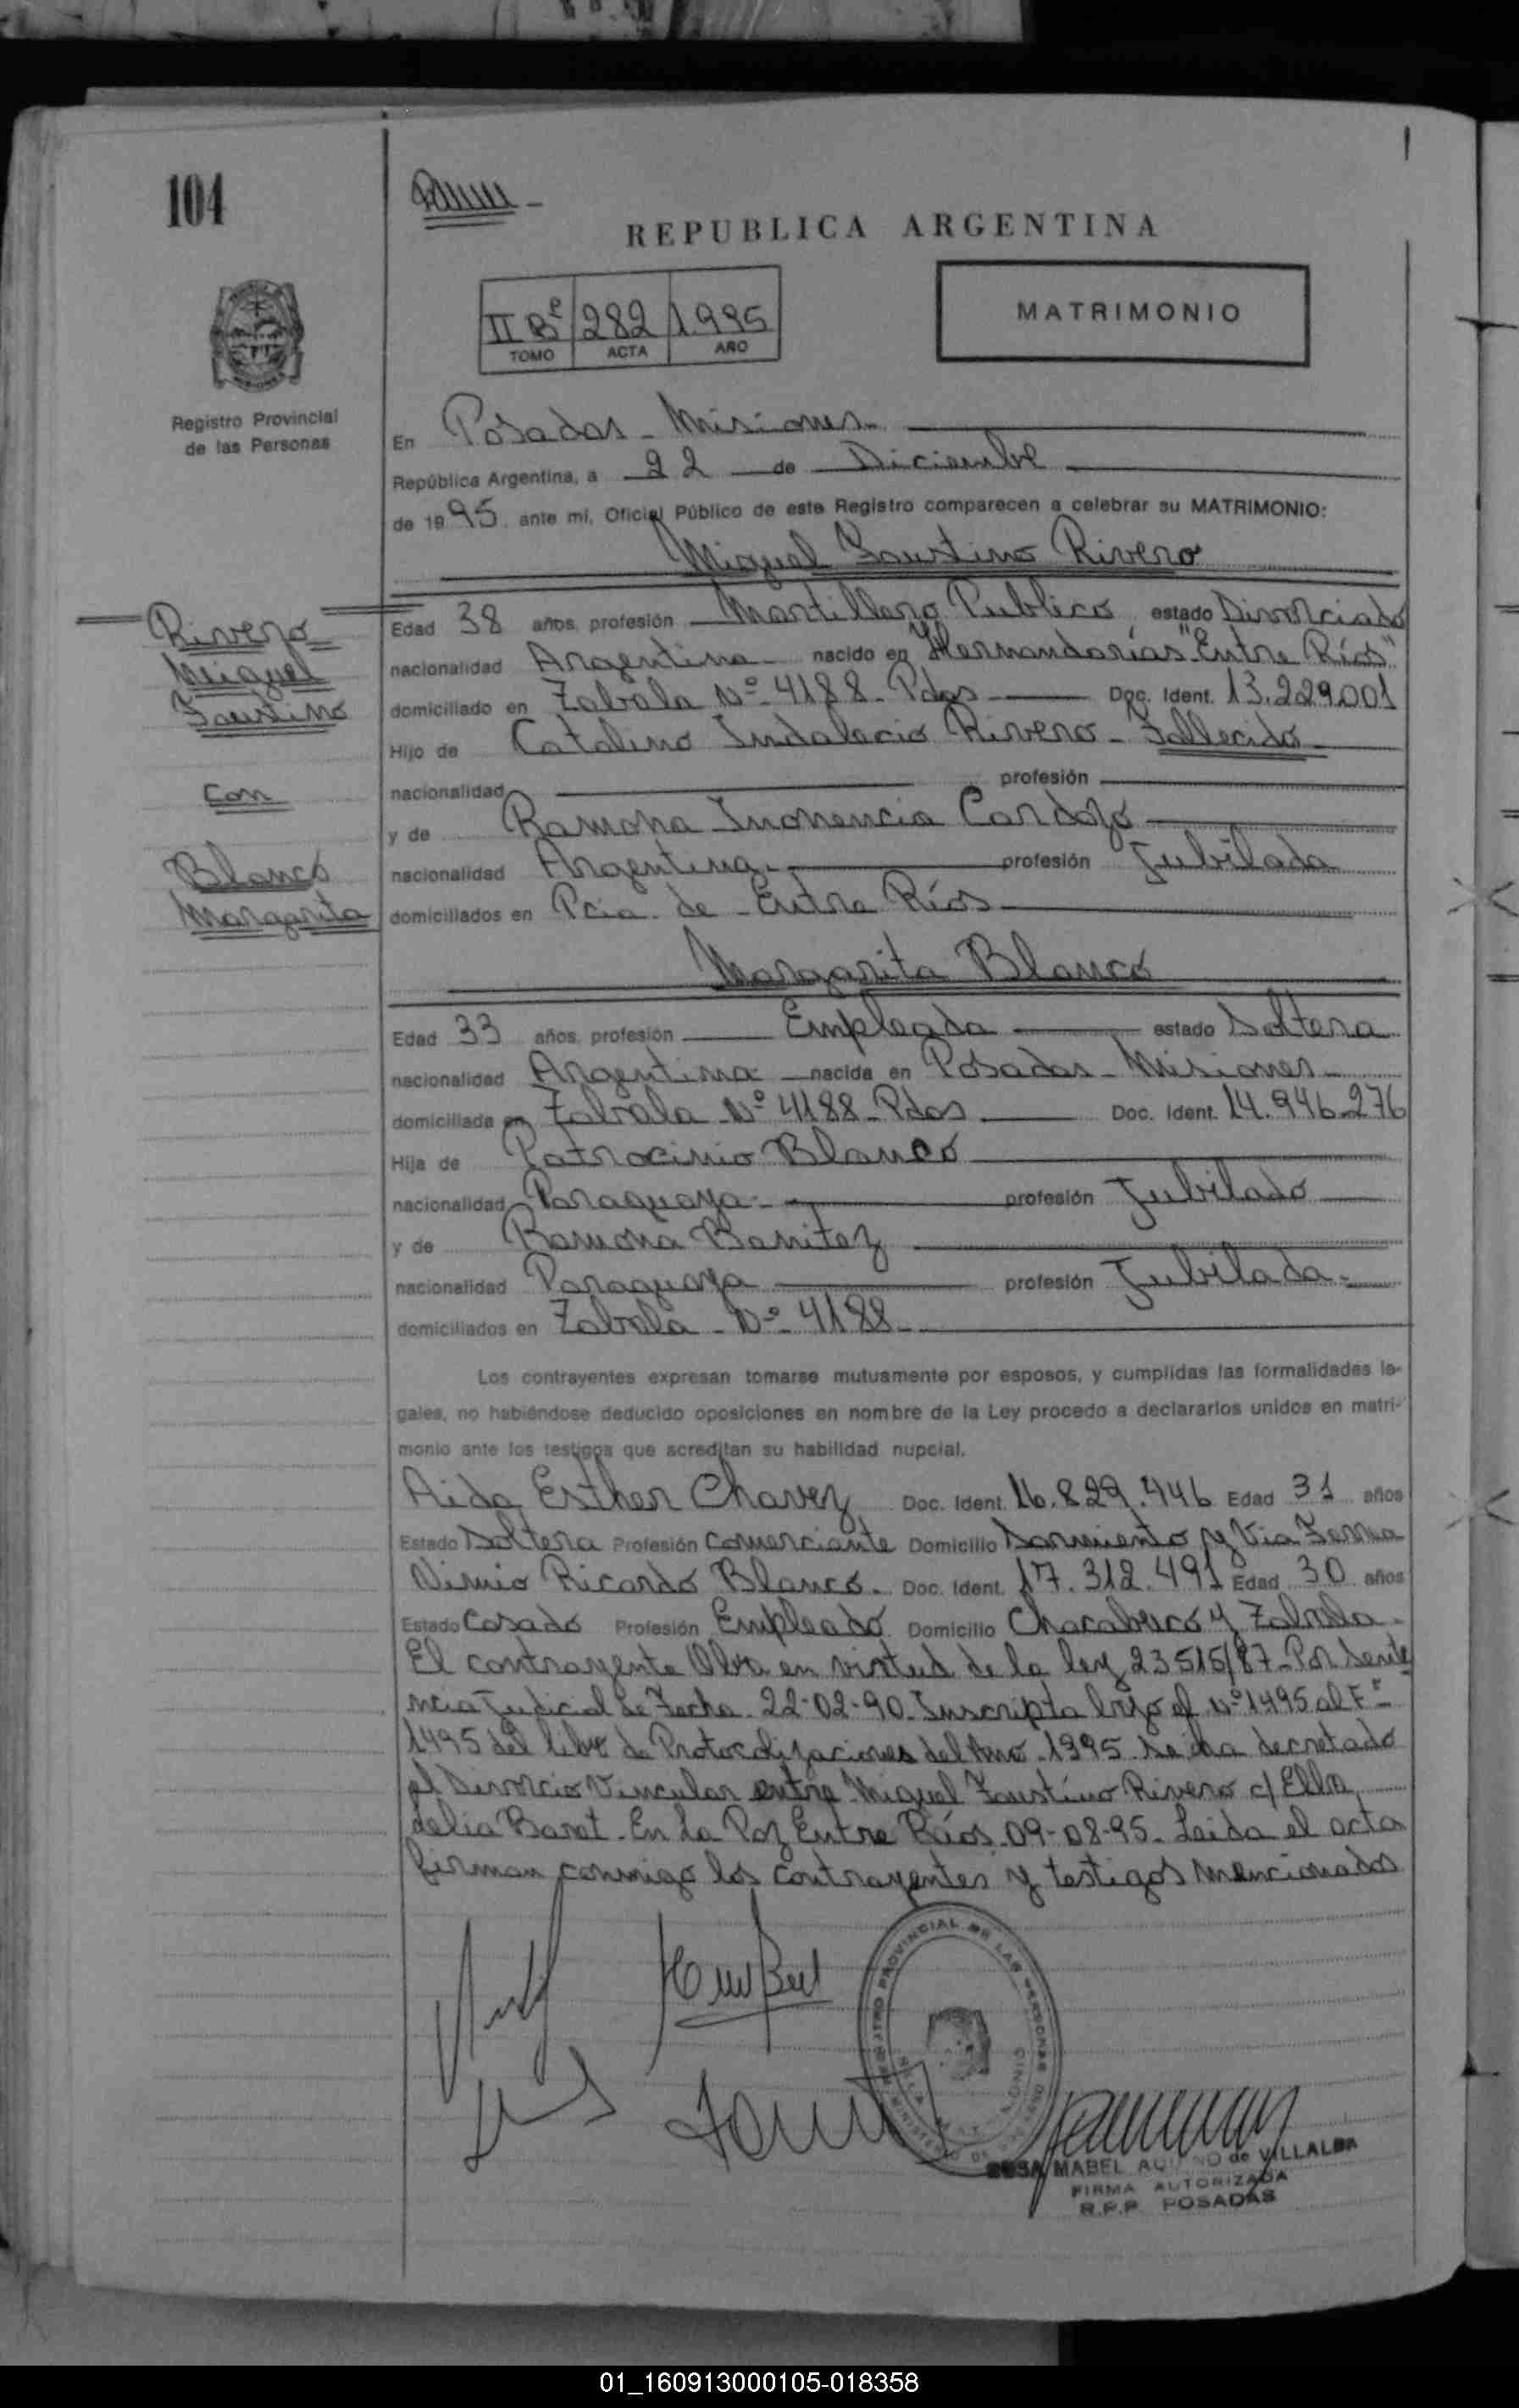 104
REPUBLICA ARGENTINA
II Bº 282 1.995
TOMO ACTA AÑO
MATRIMONIO
Registro Provincial
de las Personas
En Posadas - Misiones
República Argentina, a 22 de Diciembre
de 1995, ante mí, Oficial Público de este Registro comparecen a celebrar su MATRIMONIO:
Miguel Faustino Rivero
Rivero
Miguel
Faustino
con
Blanco
Margarita
Edad 38 años, profesión Martillero Publico estado Divorciado
nacionalidad Argentina nacido en Hernandarias "Entre Ríos"
domiciliado en Zabala Nº 4188 - Pdas Doc. Ident. 13.229.001
Hijo de Catalino Indalecio Rivero - Fallecido
nacionalidad profesión
y de Ramona Inonencia Cardozo
nacionalidad Argentina. profesión Jubilada
domiciliados en Pcia. de Entre Ríos
Margarita Blanco
Edad 33 años, profesión Empleada estado Soltera
nacionalidad Argentina nacida en Posadas - Misiones
domiciliada en Zabala Nº 4188 - Pdas Doc. Ident. 14.946.276
Hija de Patrocinio Blanco
nacionalidad Paraguaya - profesión Jubilado
y de Ramona Benitez
nacionalidad Paraguaya profesión Jubilada.
domiciliados en Zabala - Nº 4188
Los contrayentes expresan tomarse mutuamente por esposos, y cumplidas las formalidades le-
gales, no habiéndose deducido oposiciones en nombre de la Ley procedo a declararlos unidos en matri-
monio ante los testigos que acreditan su habilidad nupcial.
Aida Esther Chavez Doc. Ident. 16.829.446 Edad 31 años
Estado Soltera Profesión Comerciante Domicilio Sarmiento y Via Ferrea
Ricardo Blanco. Doc. Ident. 17.312.491 Edad 30 años
Estado Casado Profesión Empleado Domicilio Chacabuco y Zabala
El contrayente en virtud de la ley 23515/87 - Por Sente
ncia Judicial de Fecha 22-02-90 - Inscripta bajo el Nº 1495 al Fº
1495 del libro de Protocolizaciones del Año 1995 se ha decretado
el Divorcio Vincular entre Miguel Faustino Rivero c/ Ella
delia Baret - En La Paz Entre Ríos 09-08-95 - Leida el acta
firman conmigo los contrayentes y testigos mencionados
REGISTRO PROVINCIAL DE LAS PERSONAS
ROSA MABEL AQUINO de VILLALBA
FIRMA AUTORIZADA
R.P.P. POSADAS
01_160913000105-018358